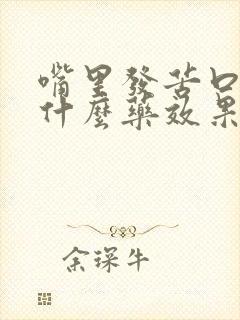 嘴里發苦口
什麼藥效果
余琛牛